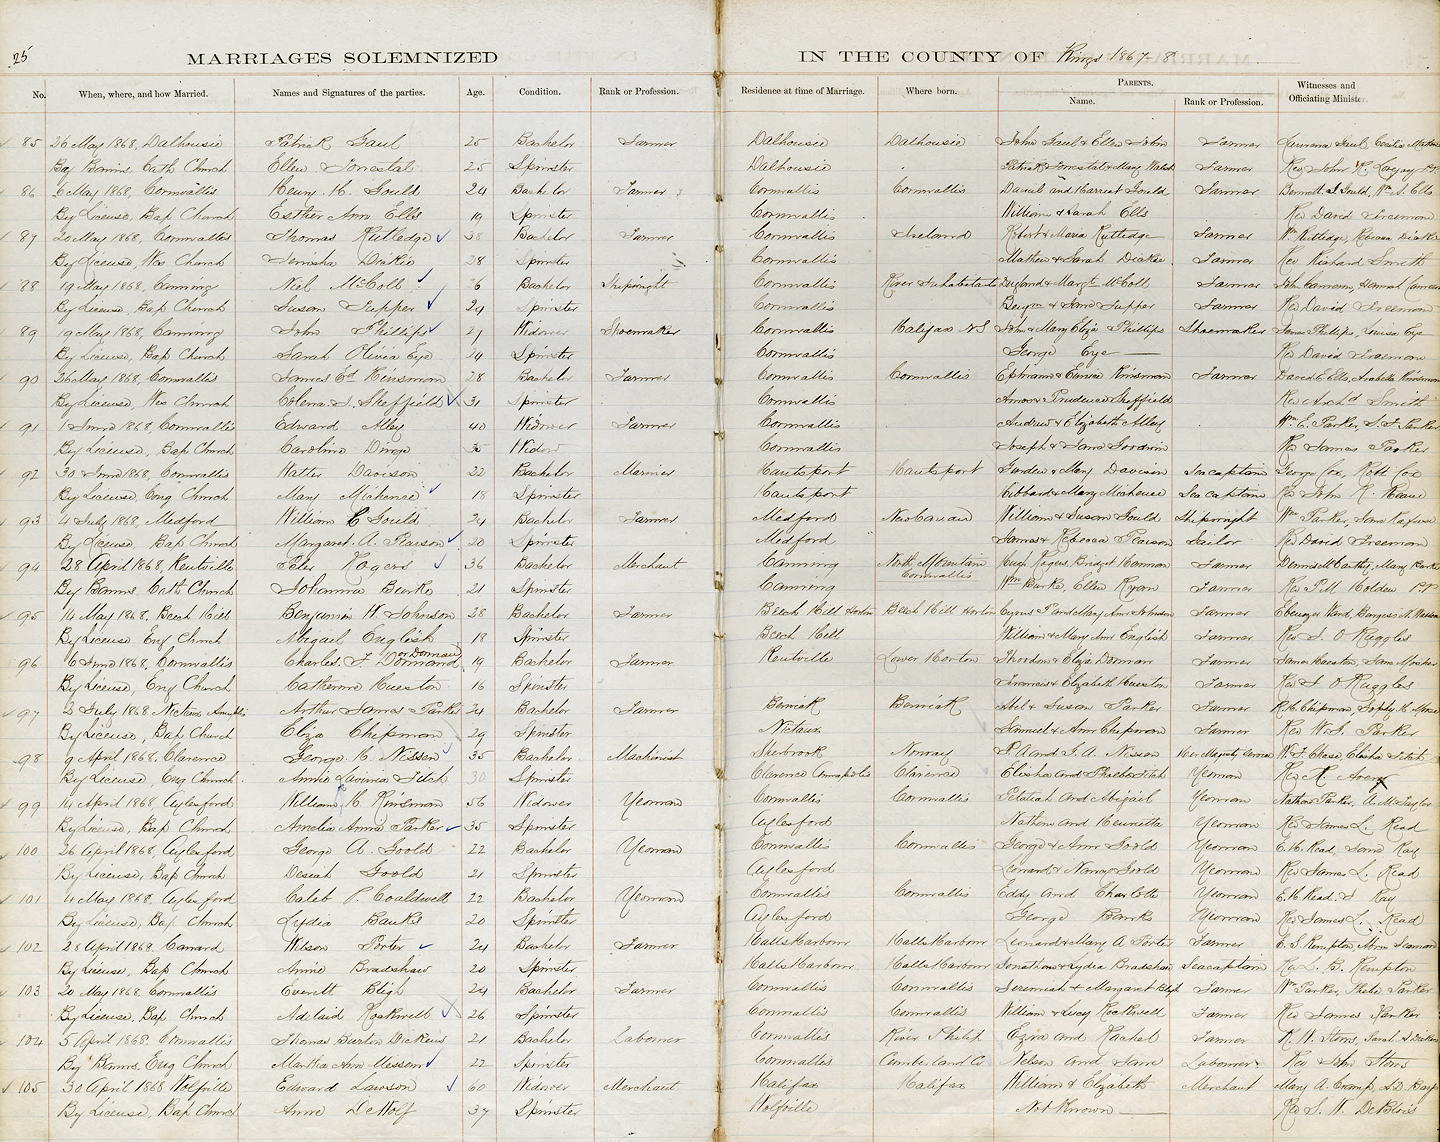 25
MARRIAGES SOLEMNIZED IN THE COUNTY OF Kings 1867-8
No. When, where, and how Married. Names and Signatures of the parties. Age. Condition. Rank or Profession. Residence at time of Marriage. Where born. PARENTS. Name. Rank or Profession. Witnesses and Officiating Minister.
85 26 May 1868, Dalhousie Patrick Gaul 25 Bachelor Farmer Dalhousie Dalhousie John Gaul & Ellen John Farmer Lawrence Gaul, Cecilia
By Banns Cath Church Ellen Forestal 25 Spinster Dalhousie Patrick Forestal & Mary Walsh Farmer Rev John
86 6 May 1868, Cornwallis Henry H. Gould 24 Bachelor Farmer Cornwallis Cornwallis Daniel and Harriet Gould Farmer Bennett I Gould, Wm A. Ells
By License, Bap Church Esther Ann Ells 19 Spinster Cornwallis William & Sarah Ells Rev David Freeman
87 20 May 1868, Cornwallis Thomas Rutledge 38 Bachelor Farmer Cornwallis Ireland Robert & Maria Rutledge Farmer Wm Rutledge, Rebecca
By License, Wes Church 28 Spinster Cornwallis Mathew & Sarah Farmer Rev Richard Smith
88 19 May 1868, Canning Niel McColl 26 Bachelor Shipwright Cornwallis River Inhabitants & Margt McColl Farmer John Cameron, Hannah Cameron
By License, Bap Church Susan Tupper 24 Spinster Cornwallis Benjm & Jane Tupper Farmer Rev David Freeman
89 19 May 1868, Canning John Phillips 27 Widower Shoemaker Cornwallis Halifax NS John & Mary Eliza Phillips Shoemaker James Phillips, Louisa Eye
By License, Bap Church Sarah Olivia Eye 24 Spinster Cornwallis George Eye Rev David Freeman
90 26 May 1868, Cornwallis James Ed Kinsman 28 Bachelor Farmer Cornwallis Cornwallis Ephriam & Eunice Kinsman Farmer David E Ells, Arabella Kinsman
By License, Wes Church Colena S. Sheffield 31 Spinster Cornwallis Amos & Prudence Sheffield Rev Archd Smith
91 1 June 1868, Cornwallis Edward Alley 40 Widower Farmer Cornwallis Andrew & Elizabeth Alley Wm. E. Parker, S. F. Parker
By License, Bap Church Caroline 35 Widow Cornwallis Joseph & Jane Goodwin Rev James Parker
92 30 June 1868, Cornwallis Walter Davison 22 Bachelor Mariner Hantsport Hantsport Gurden & Mary Davison Seacaptain George Cox, Robt Cox
By License, Eng Church Mary Michener 18 Spinster Hantsport Hibbard & Mary Michener Seacaptain Rev John
93 4 July 1868, Medford William C Gould 24 Bachelor Farmer Medford New Canaan William & Susan Gould Shipwright Wm Parker, Jane
By License, Bap Church Margaret A. Pearson 20 Spinster Medford James & Rebecca Pearson Sailor Rev David Freeman
94 28 April 1868, Kentville Peter Rogers 36 Bachelor Merchant Canning North Mountain Cornwallis Hugh Rogers Bridget Hannon Farmer Dennis McCarthy, Mary Burke
By Banns Cath Church Johanna Burke 21 Spinster Canning Wm Burke, Ellen Ryan Farmer Rev P M Holden P.P
95 14 May 1868, Beech Hill Benjamin H Johnson 28 Bachelor Farmer Beech Hill Horton Beech Hill Horton Cyrus P and Mary Ann Johnson Farmer Ebenezer Ward, Burgess N.
By License Eng Church Abigail English 18 Spinster Beech Hill William & Mary Ann English Farmer Rev J. O Ruggles
96 6 June 1868, Cornwallis Charles F Dormand or Dorman 19 Bachelor Farmer Kentville Lower Horton & Eliza Dorman Farmer James Hueston, Jane Mosher
By License, Eng Church Catherine Hueston 16 Spinster Francis & Elizabeth Hueston Farmer Rev J O Ruggles
97 2 July 1868 Nictaux Annapolis Arthur James Parker 24 Bachelor Farmer Berwick Berwick Abel & Susan Parker Farmer R. H. Chipman, Sophy H.
By License, Bap Church Eliza Chipman 29 Spinster Nictaux Samuel & Ann Chipman Farmer Rev W. G. Parker
98 9 April 1868. Clarence George C Nissen 35 Bachelor Machinist Sherbrook Norway P. A and G. A. Nissen Her Majesty Service W. F. Chase, Elisha Fitch
By License, Eng Church Annie Lavinia Fitch 30 Spinster Clarence Annapolis Clarence Elisha and Phebe Fitch Yeoman Rev R. Avery
99 14 April 1868, Aylesford William H Kinsman 56 Widower Yeoman Cornwallis Cornwallis Pelatiah and Abigail Yeoman Nathan Parker, A. McTaylor
By License, Bap Church Amelia Anna Parker 35 Spinster Aylesford Nathan and Henrietta Yeoman Rev James L. Read
100 26 April 1868, Aylesford George A. Goold 22 Bachelor Yeoman Cornwallis Cornwallis George & Ann Goold Yeoman E. H. Read, Ray
By License, Bap Church Desiah Goold 21 Spinster Aylesford Leonard & Nancy Goold Yeoman Rev James L. Read
101 4 May 1868, Aylesford Caleb P. Coaldwell 22 Bachelor Yeoman Cornwallis Cornwallis Eddy and Charlotte Yeoman E. H. Read, J Ray
By License, Bap Church Lydia Banks 20 Spinster Aylesford George Banks Yeoman Rev James L. Read
102 28 April 1868. Canard Wilson Porter 24 Bachelor Farmer Halls Harbour Halls Harbour Leonard & Mary A. Porter Farmer E. S. Kempton, Seaman
By License, Bap Church Annie Bradshaw 20 Spinster Halls Harbour Halls Harbour Jonathan & Lydia Bradshaw Seacaptain Rev L. B. Kempton
103 20 May 1868, Cornwallis Everett Bligh 24 Bachelor Farmer Cornwallis Cornwallis Jeremiah & Margaret Bligh Farmer Wm Parker, Phebe Parker
By License, Bap Church Adelaid Rockwell 26 Spinster Cornwallis Cornwallis William & Lucy Rockwell Farmer Rev James Parker
104 5 April 1868. Cornwallis Thomas Burton Dickens 21 Bachelor Labourer Cornwallis River Philip Ezra and Rachel Farmer R. W. Storrs, Sarah A Dickens
By Banns, Eng Church Martha Ann Messom 22 Spinster Cornwallis Cumberland Co Nelson and Jane Labourer Rev John Storrs
105 30 April 1868 Wolfville Edward Lawson 60 Widower Merchant Halifax Halifax William & Elizabeth Merchant Mary A. Cramp, S D
By License, Bap Church Annie DeWolf 37 Spinster Wolfville Not Known Rev S. W. DeBlois